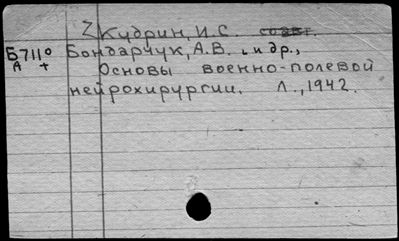 Кудрин, И.С. соавт.
Б7110 Бондарчук, А.В. и др.,
А + Основы военно-полевой
нейрохирургии. Л., 1942.